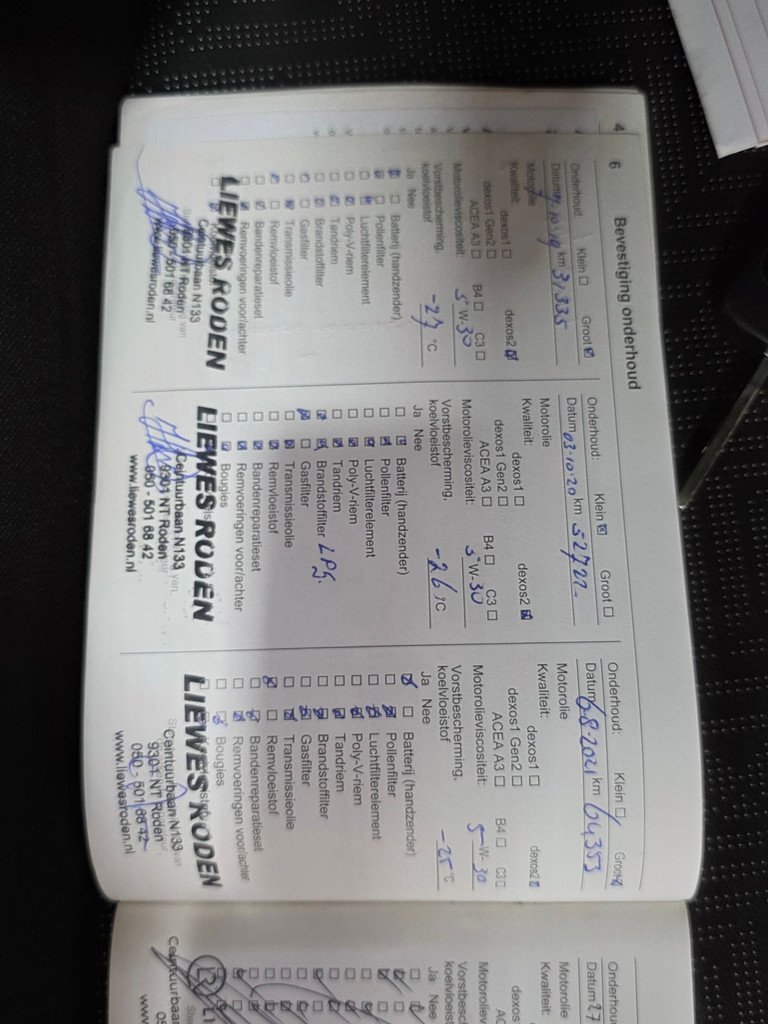 4
6
Bevestiging onderhoud
Onderhoud: Klein ☐ Groot ☑
Datum km 31335
Motorolie
Kwaliteit: dexos1 ☐ dexos2 ☑
dexos1 Gen2 ☐
ACEA A3 ☐ B4 ☐ C3 ☐
Motorolieviscositeit: 5 W-30
Vorstbescherming,
koelvloeistof -27 °C
Ja Nee
Batterij (handzender)
Pollenfilter
Luchtfilterelement
Poly-V-riem
Tandriem
Brandstoffilter
Gasfilter
Transmissieolie
Remvloeistof
Bandenreparatieset
Remvoeringen voor/achter
LIEWES RODEN
Ceintuurbaan N133
9301 NT Roden
050 - 501 68 42
www.liewesroden.nl
Onderhoud: Klein ☑ Groot ☐
Datum 03.10.20 km 52722
Motorolie
Kwaliteit: dexos1 ☐ dexos2 ☑
dexos1 Gen2 ☐
ACEA A3 ☐ B4 ☐ C3 ☐
Motorolieviscositeit: 5 W-30
Vorstbescherming,
koelvloeistof -26 °C
Ja Nee
Batterij (handzender)
Pollenfilter
Luchtfilterelement
Poly-V-riem
Tandriem
Brandstoffilter LPG
Gasfilter
Transmissieolie
Remvloeistof
Bandenreparatieset
Remvoeringen voor/achter
Bougies
LIEWES RODEN
Ceintuurbaan N133
9301 NT Roden
050 - 501 68 42
www.liewesroden.nl
Onderhoud: Klein ☐ Groot ☑
Datum 6.8.2021 km 64353
Motorolie
Kwaliteit: dexos1 ☐ dexos2 ☑
dexos1 Gen2 ☐
ACEA A3 ☐ B4 ☐ C3 ☐
Motorolieviscositeit: 5 W-30
Vorstbescherming,
koelvloeistof -25 °C
Ja Nee
Batterij (handzender)
Pollenfilter
Luchtfilterelement
Poly-V-riem
Tandriem
Brandstoffilter
Gasfilter
Transmissieolie
Remvloeistof
Bandenreparatieset
Remvoeringen voor/achter
Bougies
LIEWES RODEN
Ceintuurbaan N133
9301 NT Roden
050 - 501 68 42
www.liewesroden.nl
Onderhou
Datum 27
Motorolie
Kwaliteit:
dexos
Motoroliev
Vorstbesch
koelvloeist
Ja Nee
Ceintuurbaa